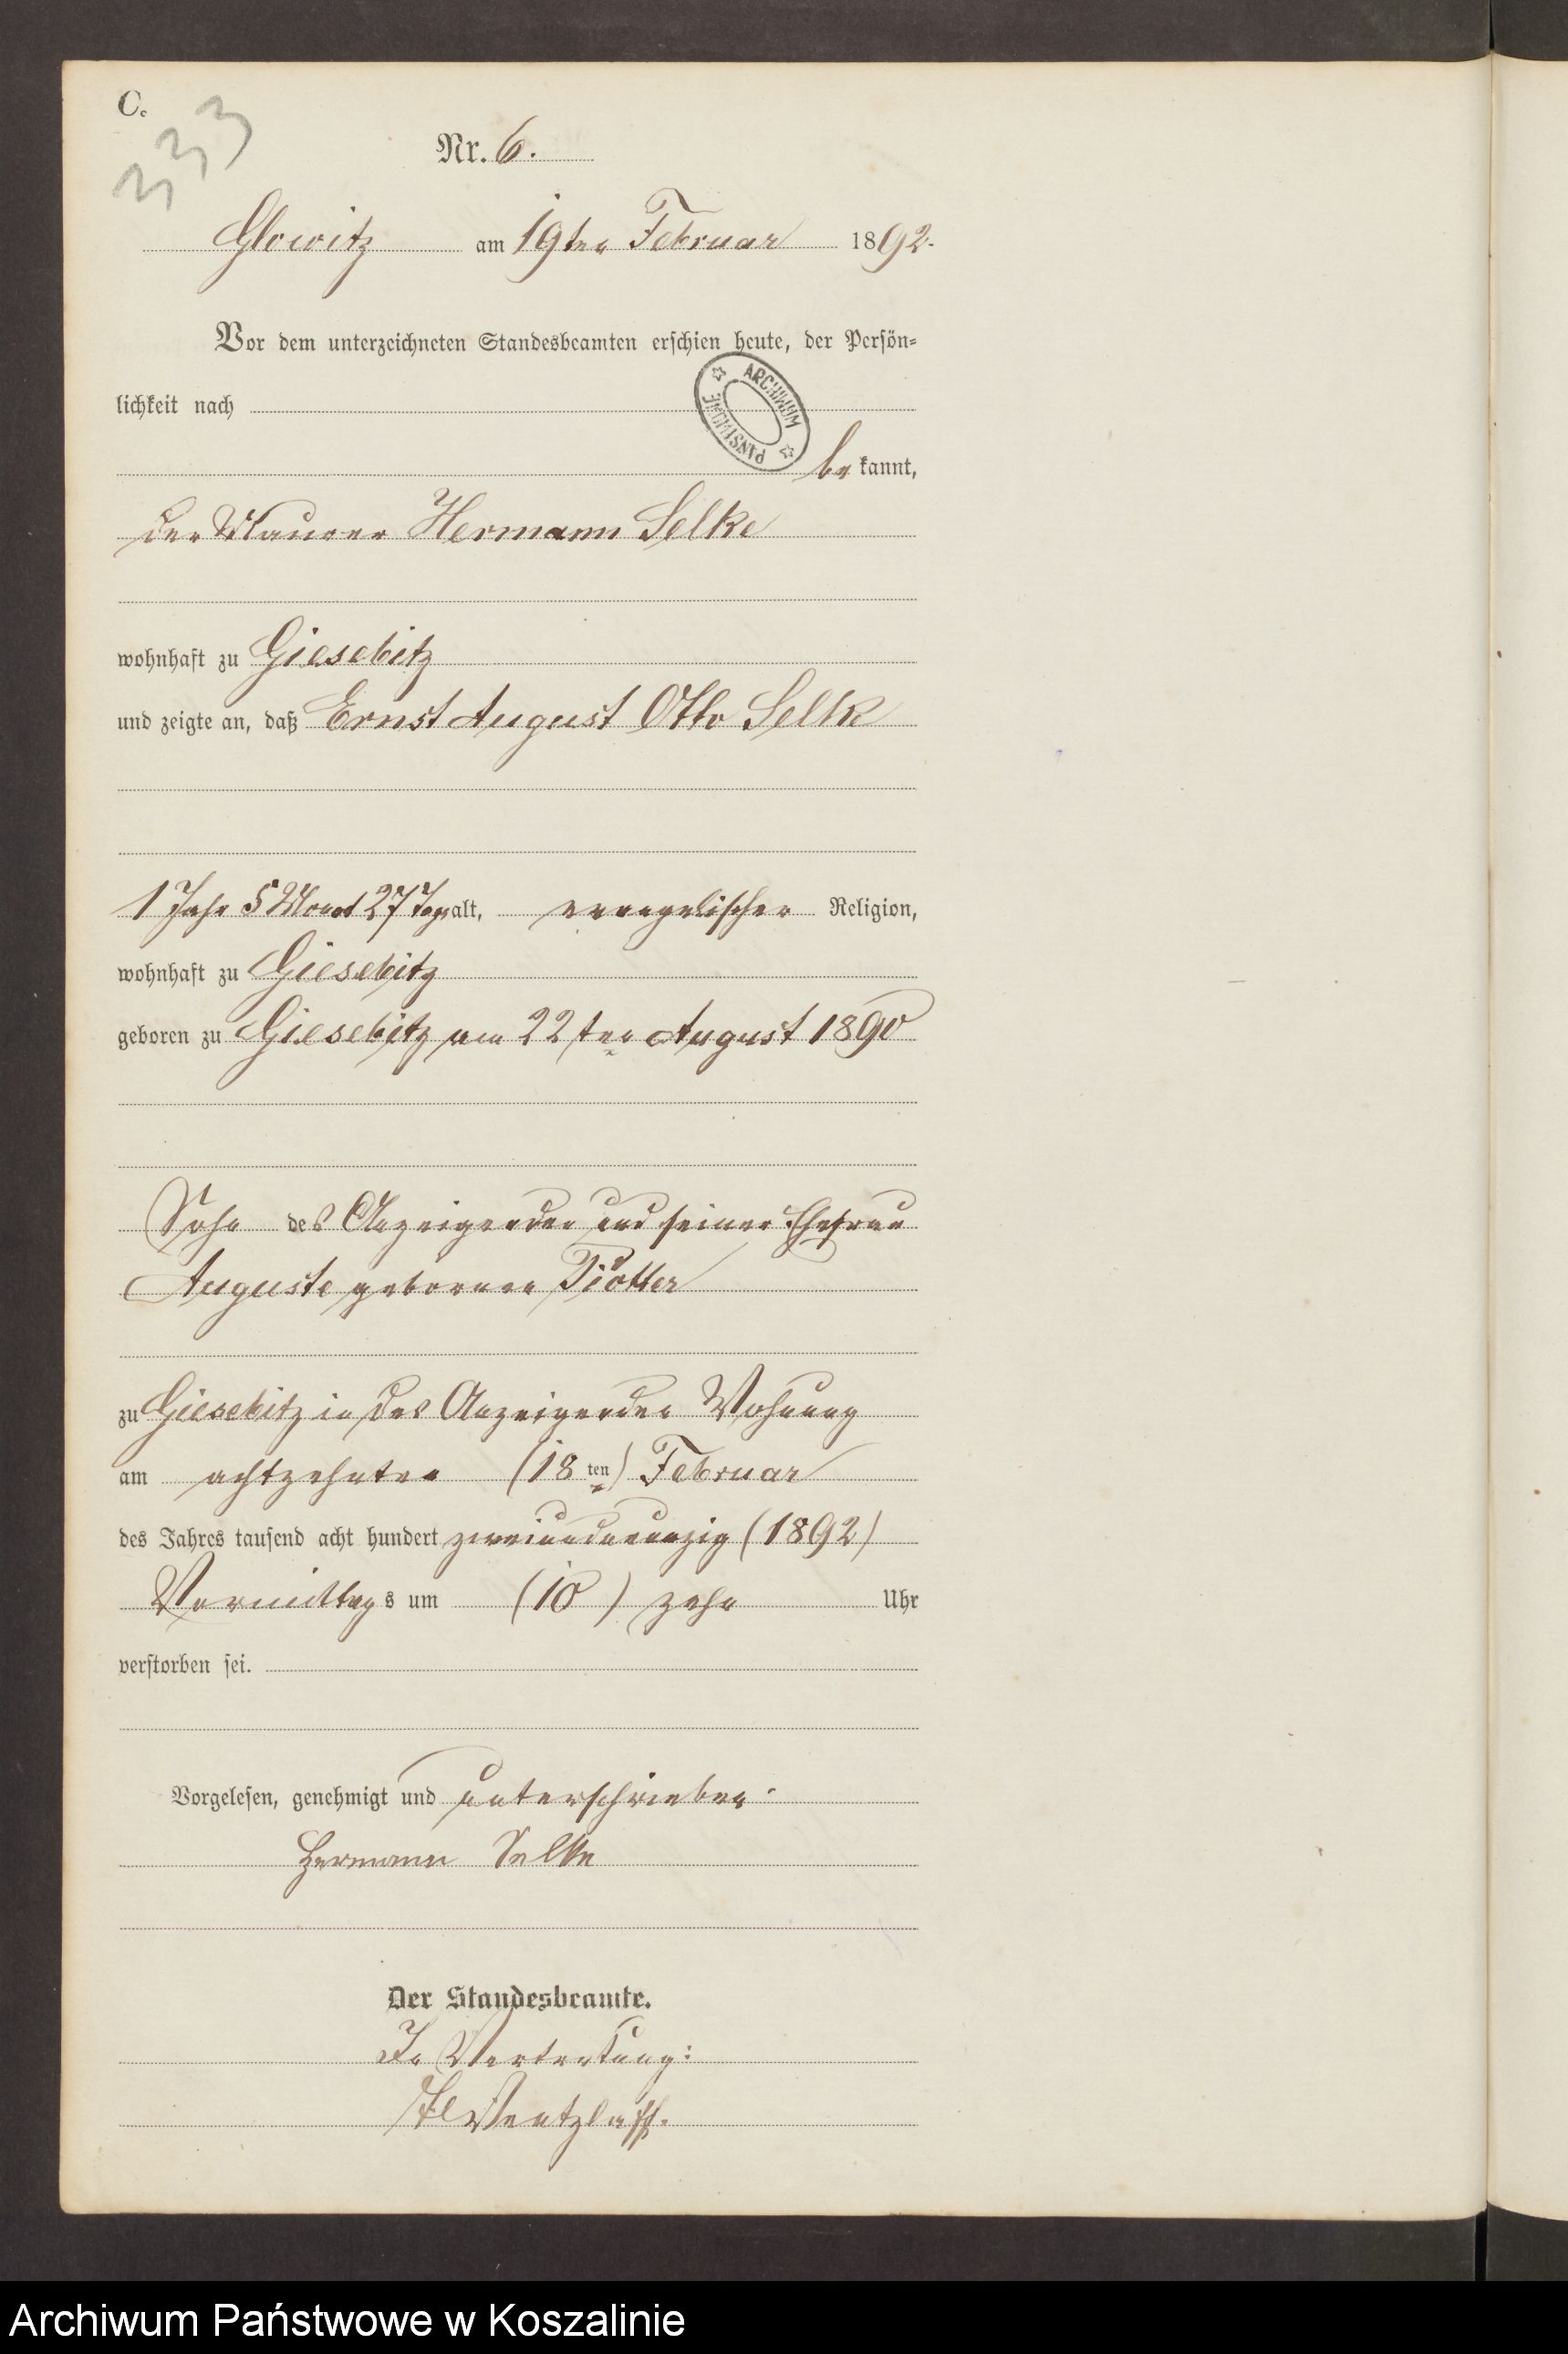 C.
333
Nr. 6.
Glowitz am 19ten Februar 1892.
Vor dem unterzeichneten Standesbeamten erschien heute, der Persön-
lichkeit nach
ARCHIWUM PAŃSTWOWE
bekannt,
der Maurer Hermann Selke
wohnhaft zu Giesebitz
und zeigte an, daß Ernst August Otto Selk
1 Jahr 5 Monat 27 Tage alt, evangelischer Religion,
wohnhaft zu Giesebitz
geboren zu Giesebitz am 22ten August 1890
Sohn des Anzeigenden und seiner Ehefrau
Auguste geborenen
zu Giesebitz in des Anzeigenden Wohnung
am achtzehnten (18ten) Februar
des Jahres tausend acht hundert zweiundneunzig (1892)
Vormittags um (10) zehn Uhr
verstorben sei.
Vorgelesen, genehmigt und unterschrieben.
Hermann Selke
Der Standesbeamte.
In Vertretung:
Wentzlaff.
Archiwum Państwowe w Koszalinie